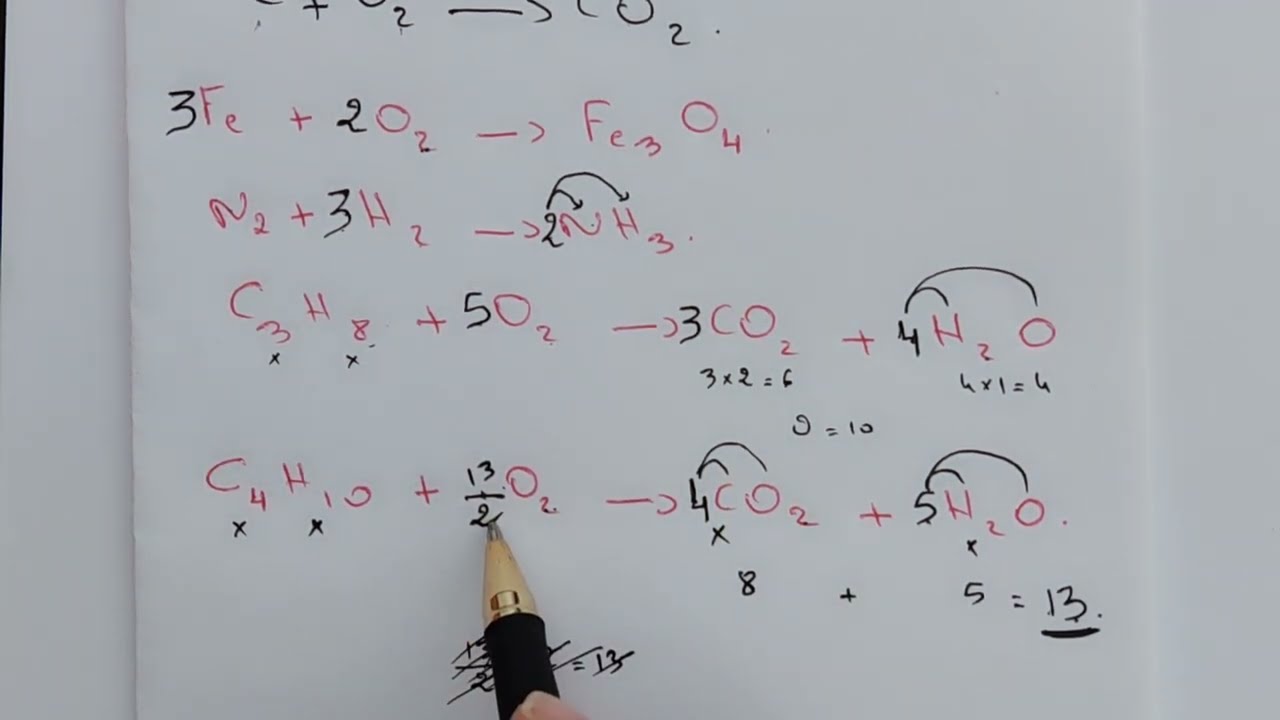 + O₂ → CO₂.
3Fe + 2O₂ → Fe₃O₄.
N₂ + 3H₂ → 2NH₃.
C₃H₈ + 5O₂ → 3CO₂ + 4H₂O
x x
3×2=6 4×1=4
O = 10
C₄H₁₀ + 13/2 O₂ → 4CO₂ + 5H₂O.
x x x x
8 + 5 = 13.
= 13